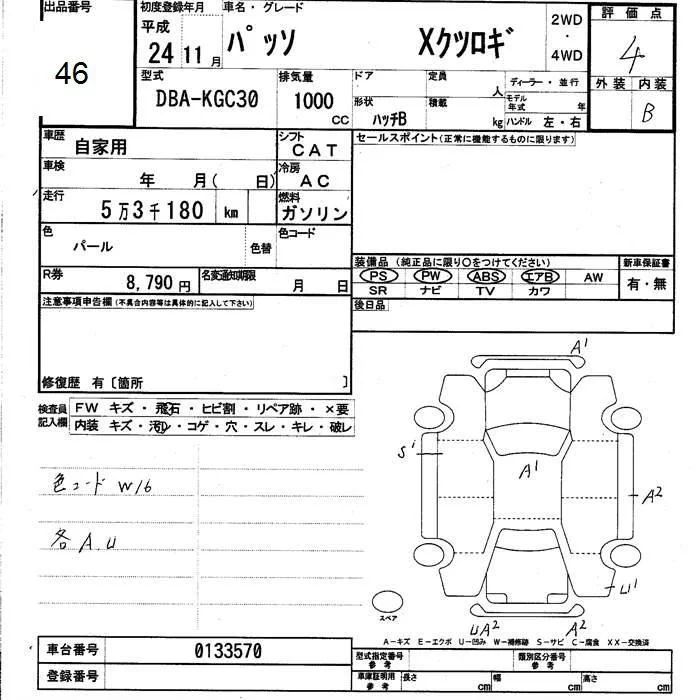 出品番号
46
初度登録年月
平成
24 11 月
車名・グレード
パッソ Xクツロギ
2WD
・
4WD
評価点
4
外装 内装
B
型式
DBA-KGC30
排気量
1000
cc
ドア
定員
人
ディーラー・並行
形状
ハッチB
積載
kg
モデル年式 年
ハンドル 左・右
車歴
自家用
シフト
CAT
セールスポイント(正常に機能するものに限ります)
車検
年 月( 日)
冷房
AC
走行
5万3千180 km
燃料
ガソリン
色
パール
色替
色コード
装備品(純正品に限り○をつけてください)
PS PW ABS エアB AW
SR ナビ TV カワ
新車保証書
有・無
R券
8,790 円
名変通知期限
月 日
後日品
注意事項申告欄(不具合内容等は具体的に記入して下さい)
修復歴 有〔箇所 〕
検査員
記入欄
FW キズ・飛石・ヒビ割・リペア跡・×要
内装 キズ・汚レ・コゲ・穴・スレ・キレ・破レ
色コード W16
各 A.U
A1
S1
A1
A2
U1
UA2
A2
スペア
A-キズ E-エクボ U-凹み W-補修跡 S-サビ C-腐食 XX-交換済
車台番号
0133570
登録番号
型式指定番号
参考
類別区分番号
参考
車庫証明用
参考
長さ cm
幅 cm
高さ cm